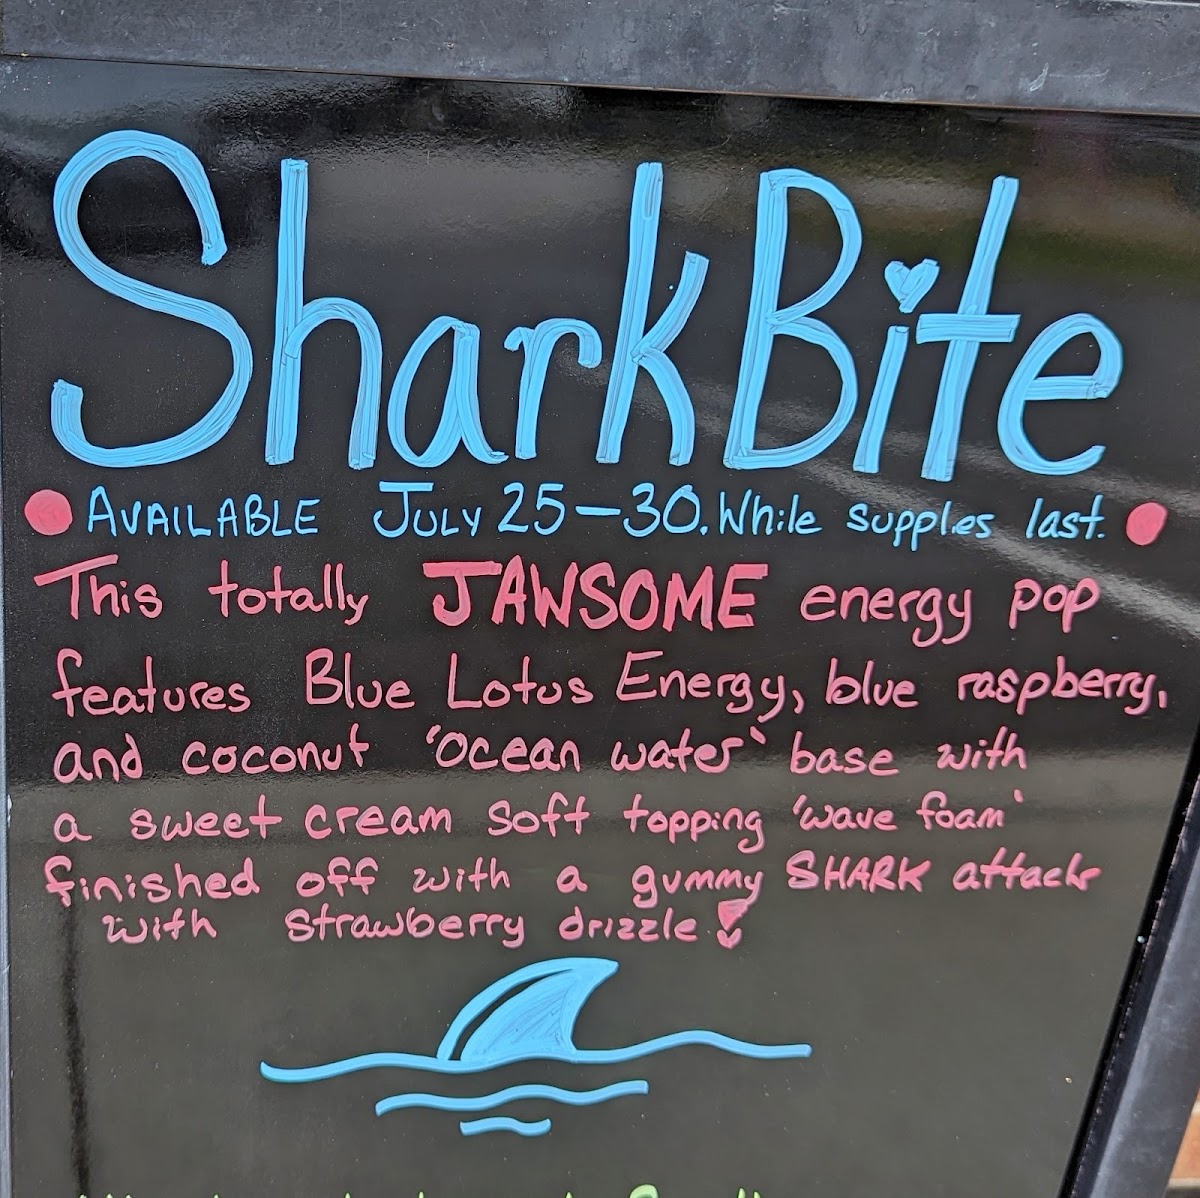 SharkBite
AVAILABLE JULY 25-30. While supplies last.
This totally JAWSOME energy pop
features Blue Lotus Energy, blue raspberry,
and coconut 'ocean water' base with
a sweet cream soft topping 'wave foam'
finished off with a gummy SHARK attack
with strawberry drizzle!